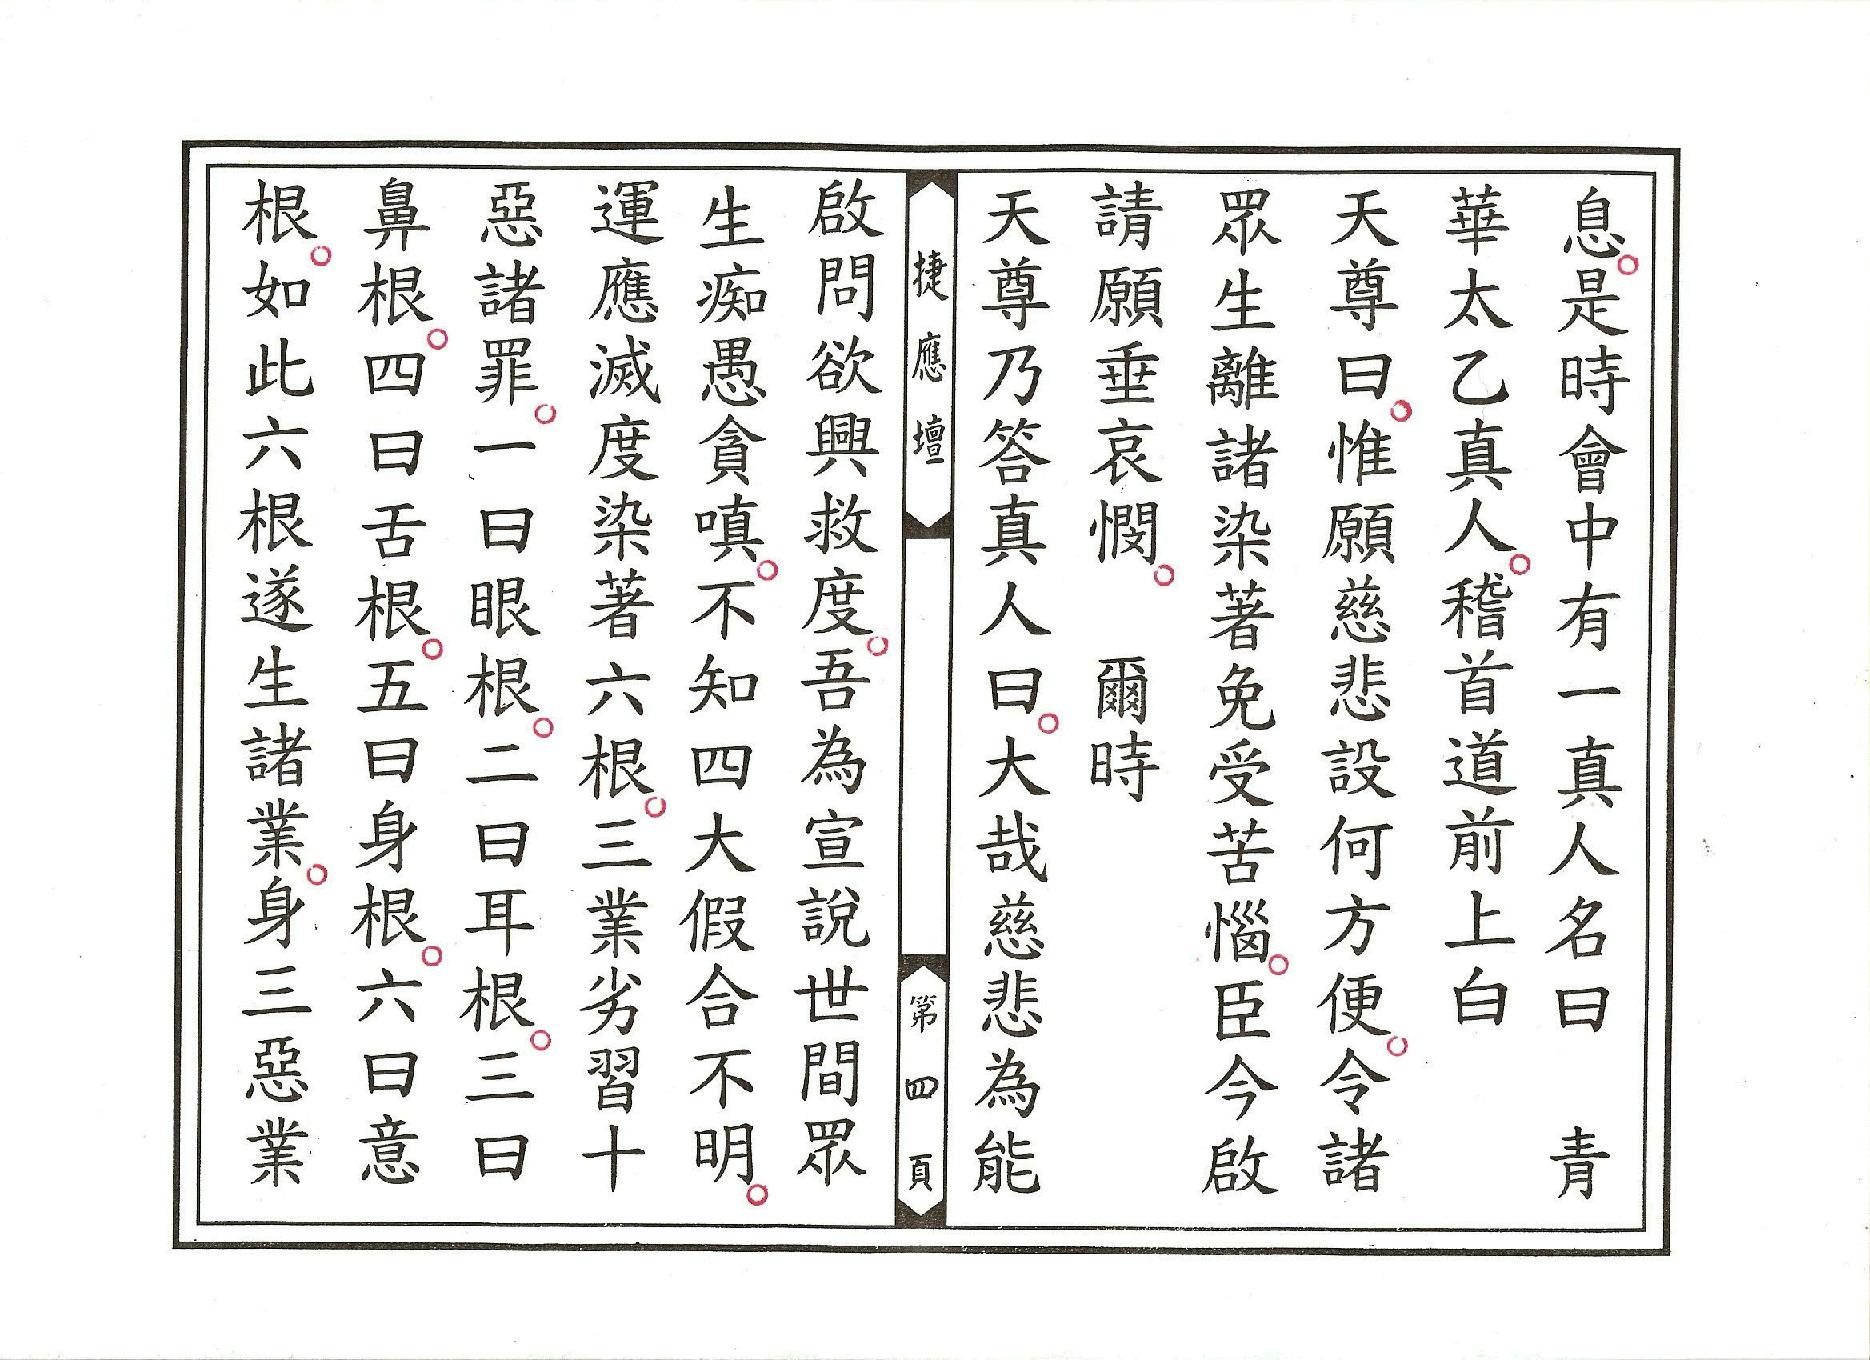 息。是時會中有一真人名曰　青
華太乙真人。稽首道前上白
天尊曰。惟願慈悲設何方便。令諸
眾生離諸染著免受苦惱。臣今啟
請願垂哀憫。　爾時
天尊乃答真人曰。大哉慈悲為能
捷應壇
第四頁
啟問欲興救度。吾為宣說世間眾
生痴愚貪嗔。不知四大假合不明。
運應滅度染著六根。三業劣習十
惡諸罪。一曰眼根。二曰耳根。三曰
鼻根。四曰舌根。五曰身根。六曰意
根。如此六根遂生諸業。身三惡業